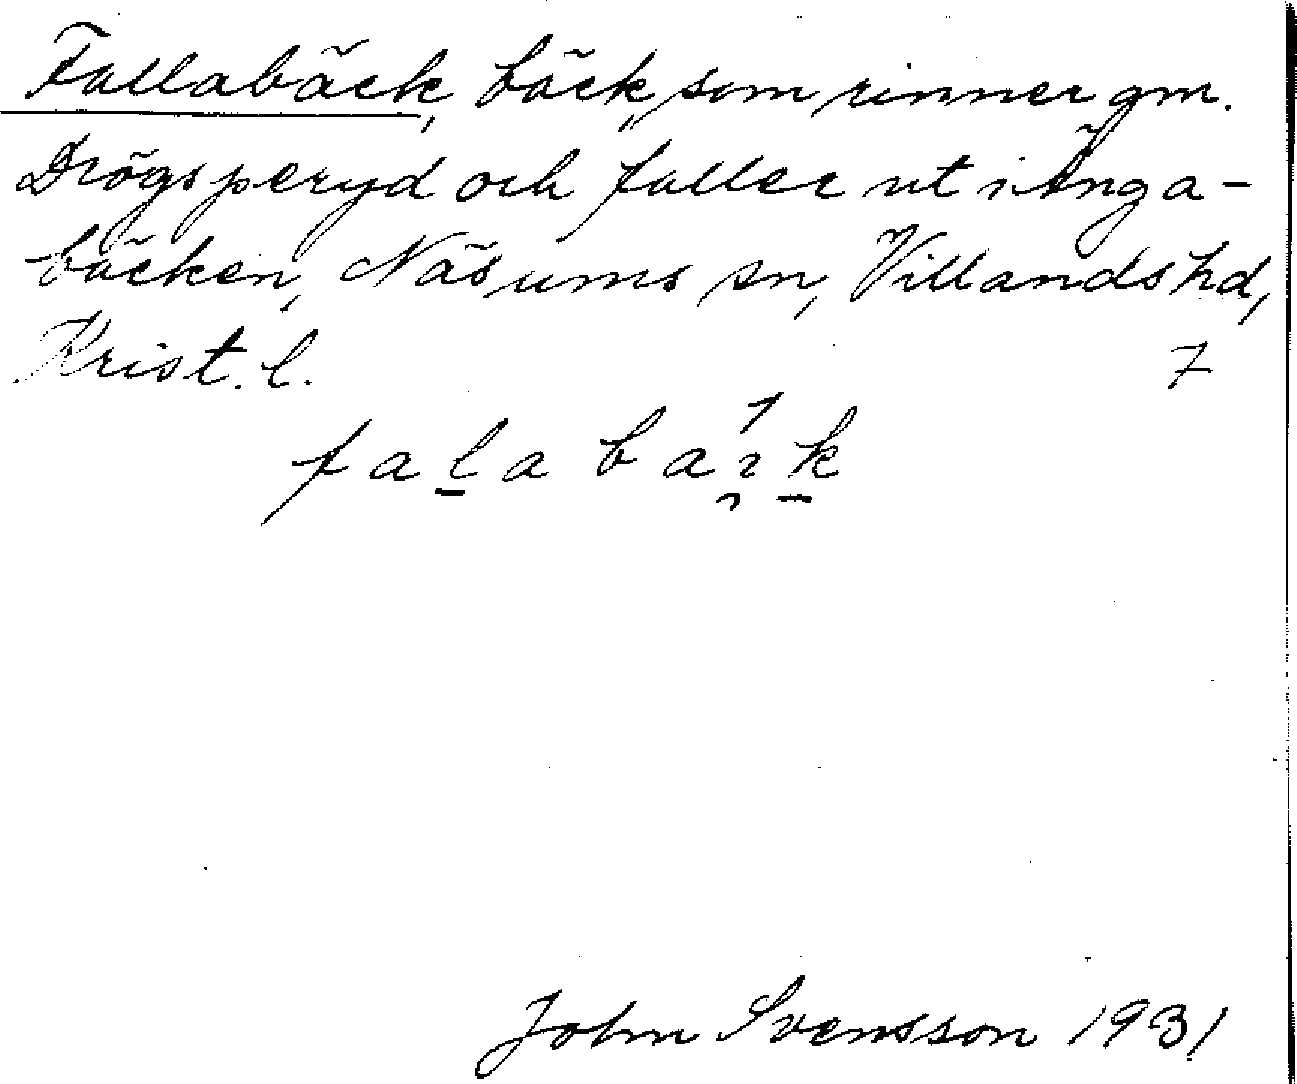 Fallabäck, bäck, som rinner gm.
Drögsperyd och faller ut i Änga-
bäcken, Näsums sn, Villands hd,
Krist. l. 7
John Svensson 1931